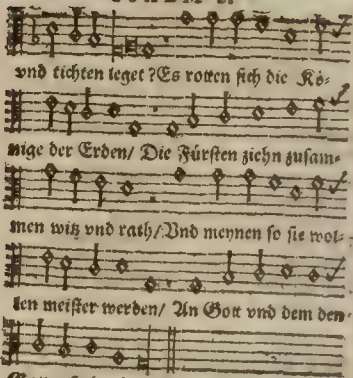 vnd tichten leget ?Es rotten sich die Kö-
nige der Erden/ Die Fürsten ziehn zusam-
men witz vnd rath/ Vnd meynen so sie wol-
len meister werden/ An Gott vnd dem den-